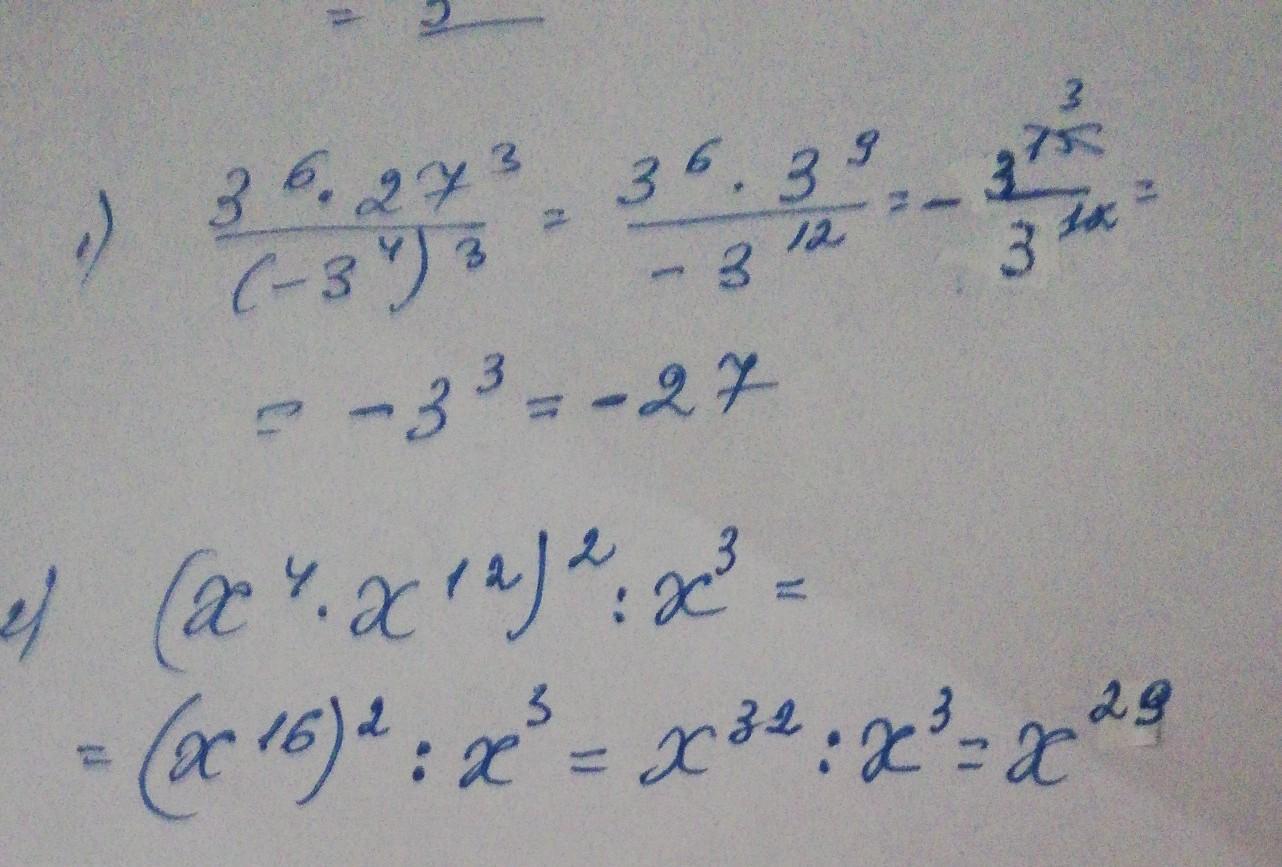 =
1) 3^6 · 27^3 / (-3^4)^3 = 3^6 · 3^9 / -3^12 = - 3^15 3 / 3^12 =
= -3^3 = -27
2) (x^4 · x^12)^2 : x^3 =
= (x^16)^2 : x^3 = x^32 : x^3 = x^29